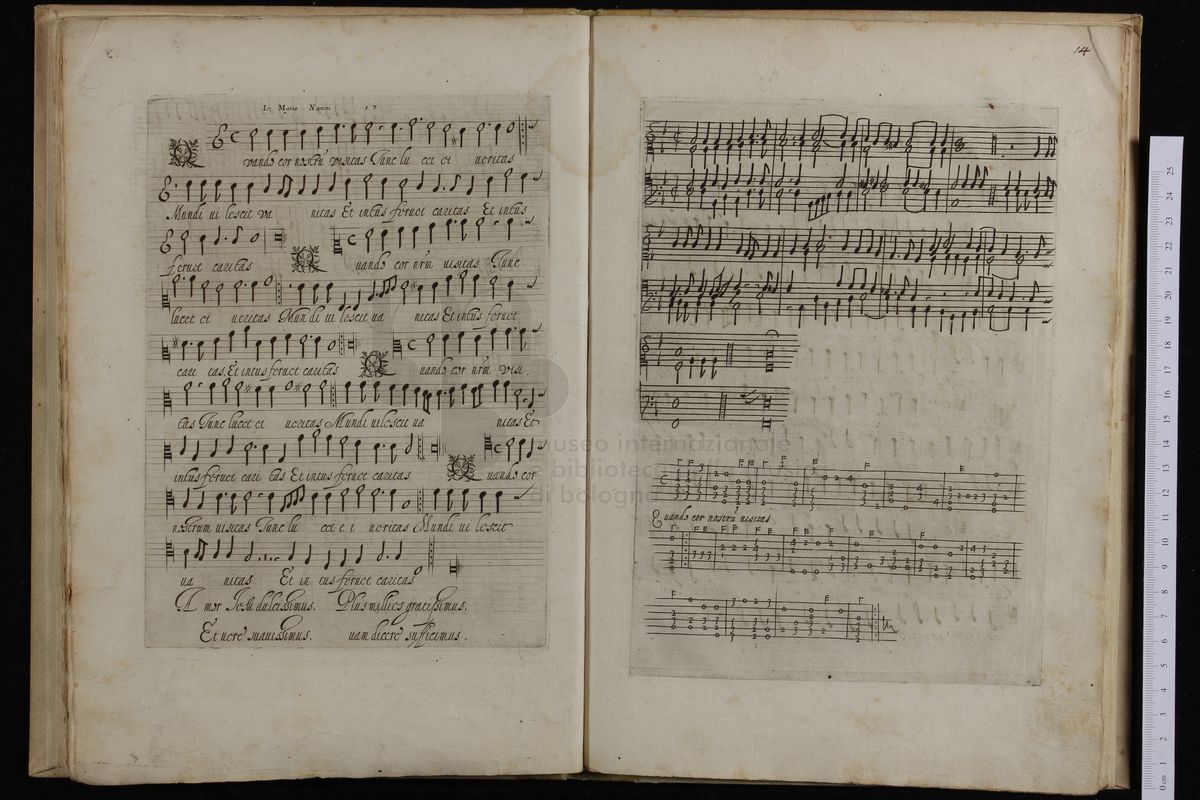 Io: Maria Nanini 17
Quando cor nostrũ visitas Tunc lu cet ei ueritas
Mundi ui lescit va nitas Et intus feruet caritas Et intus
feruet caritas Quando cor nrm̃ uisitas Tunc
lucet ei ueritas Mundi ui lescit ua nitas Et intus feruet
cari tas. Et intus feruet caritas Quando cor nrm̃ visi.
tas Tunc lucet ei ueritas Mundi uilescit ua nitas Et
intus feruet cari tas Et intus feruet caritas Quando cor
nostrum uisitas Tunc lu cet e i ueritas Mundi ui lescit
ua nitas Et in tus feruet caritas
A mor Iesu dulcissimus. Plus millies gratissimus.
Et uere suauissimus. uam dicere sufficimus.
14
Quando cor nostrũ uisitas
museo internazionale
e biblioteca
di bologna